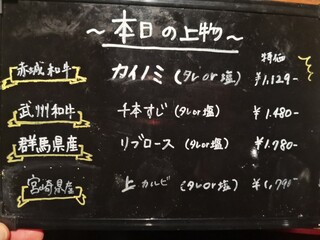 ～本日の上物～
特価
赤城和牛 カイノミ (タレor塩) ¥1.129-
武州和牛 千本すじ (タレor塩) ¥1.480-
群馬県産 リブロース (タレor塩) ¥1.780-
宮崎県産 上カルビ (タレor塩)